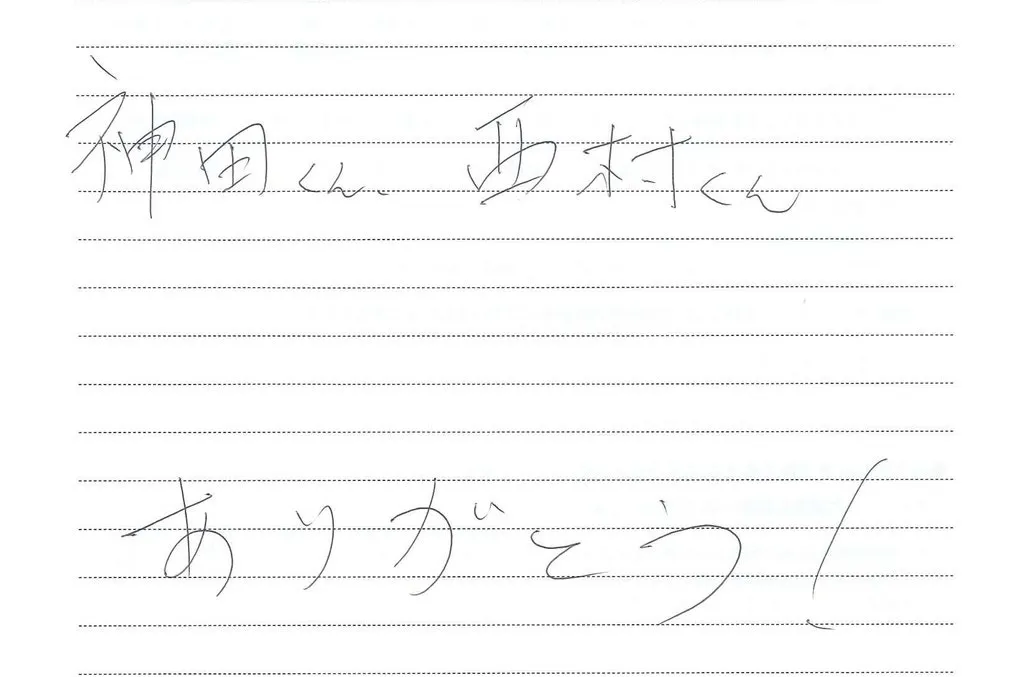 神田くん、西村くん
ありがとう!